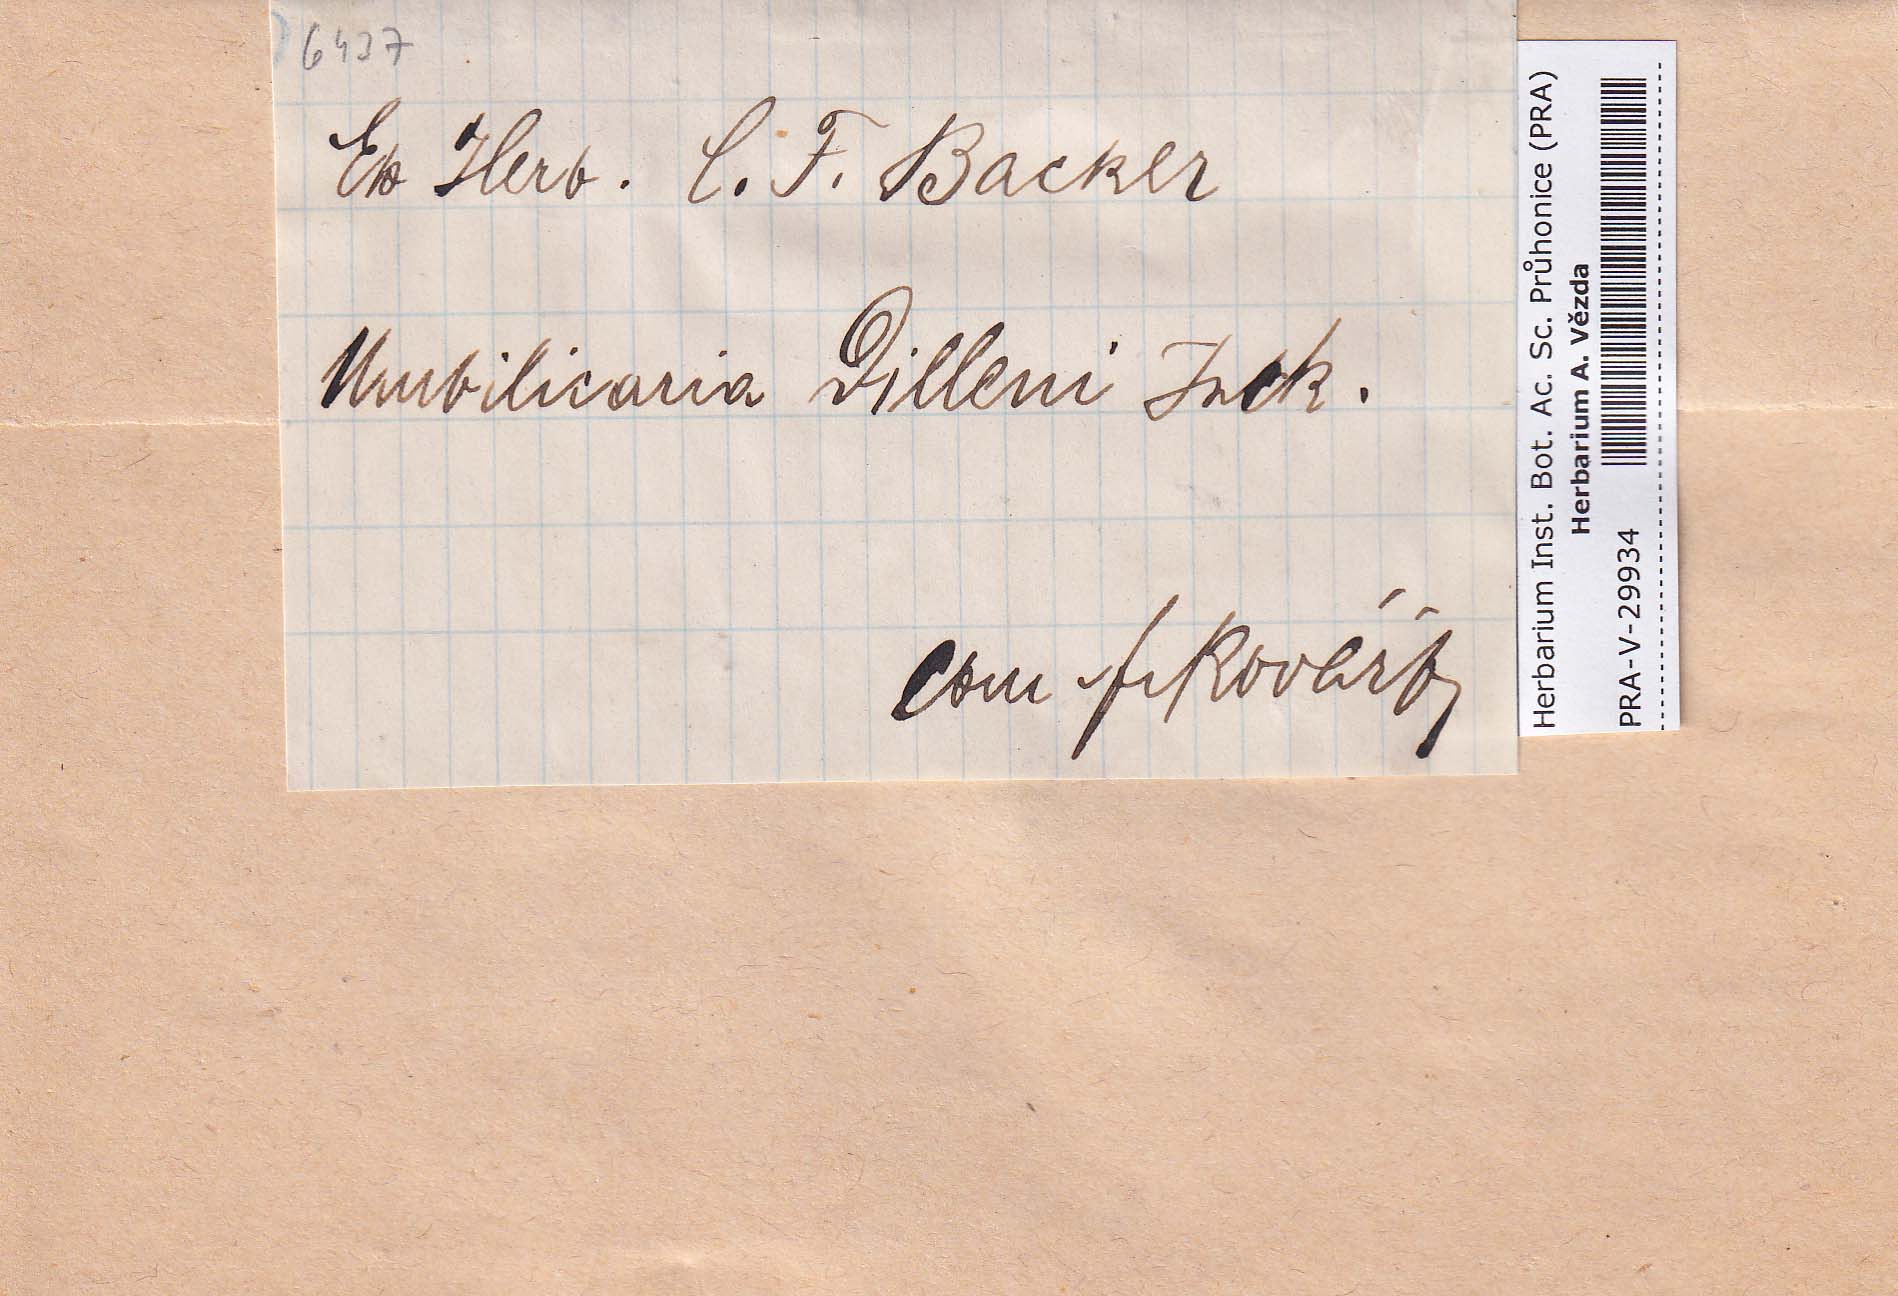 6437
Ex Herb. C. F. Backer
Umbilicaria Dilleni Tuck.
com f. Kovářík
Herbarium Inst. Bot. Ac. Sc. Průhonice (PRA)
Herbarium A. Vězda
PRA-V-29934